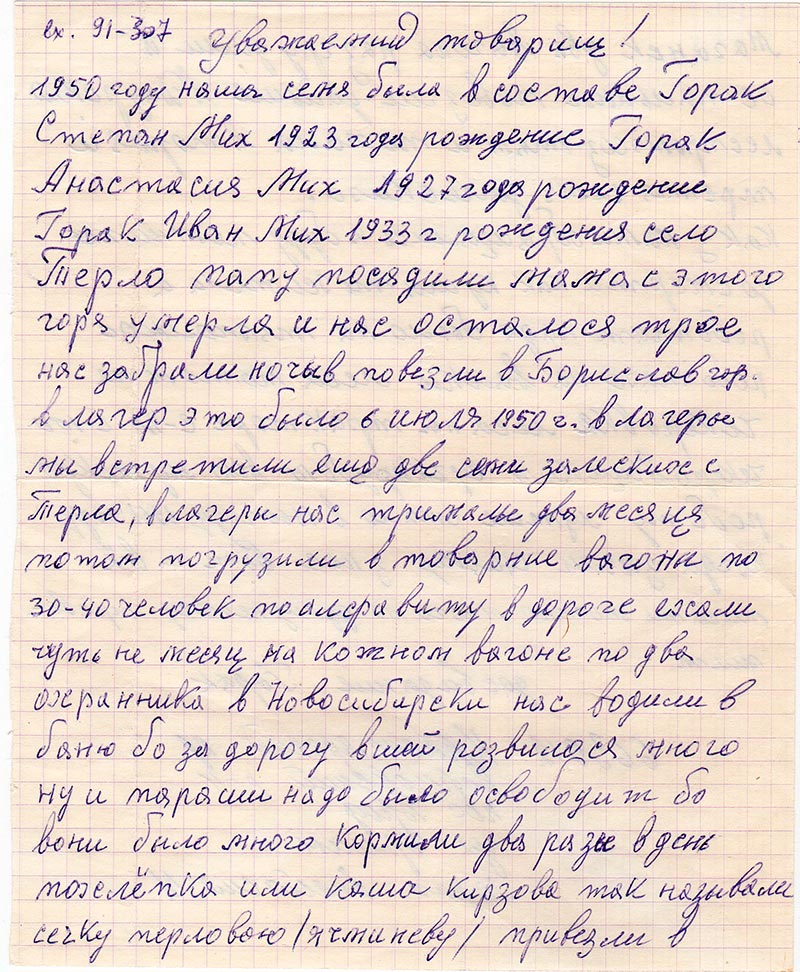 вх. 91-307 Уважаемий товарищ!
1950 году наша семя была в составе Горак
Степан Мих 1923 года рождение Горак
Анастасия Мих 1927 года рождение
Горак Иван Мих 1933 г рождения село
Терло папу посадили мама с этого
горя умерла и нас осталося трое
нас забрали ночыв повезли в Борислав гор.
в лагер это было 6 июля 1950 г. в лагерье
мы встретили ешо две семи залескиос с
Терла, в лагеры нас трималы два месяця
потом погрузили в товарние вагоны по
30-40 человек по алфавиту в дороге ехали
чуть не месяц на кожном вагоне по два
охранника в Новосибирски нас водили в
баню бо за дорогу вшай розвилося много
ну и параши надо было освободит бо
вони было много Кормили два разы в день
похлёпка или каша кирзова так называли
сечку перловаю /ячминеву/ привезли в